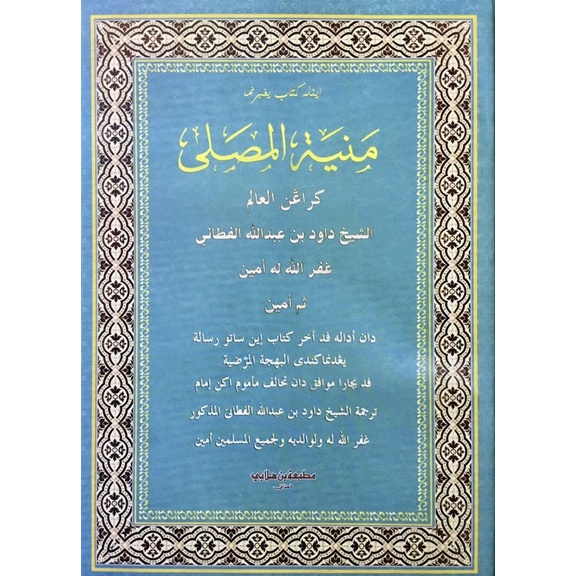 اينله كتاب يڠبرنما
منية المصلى
كراڠن العالم
الشيخ داود بن عبدالله الفطاني
غفر الله له أمين
ثم أمين
دان أداله فد أخر كتاب إين ساتو رسالة
يڠدنماكندى البهجة المرضية
فد بچارا موافق دان تخالف مأموم اكن إمام
ترجمة الشيخ داود بن عبدالله الفطانى المذكور
غفر الله له ولوالديه ولجميع المسلمين أمين
مطبعة بن هلابي
فطاني